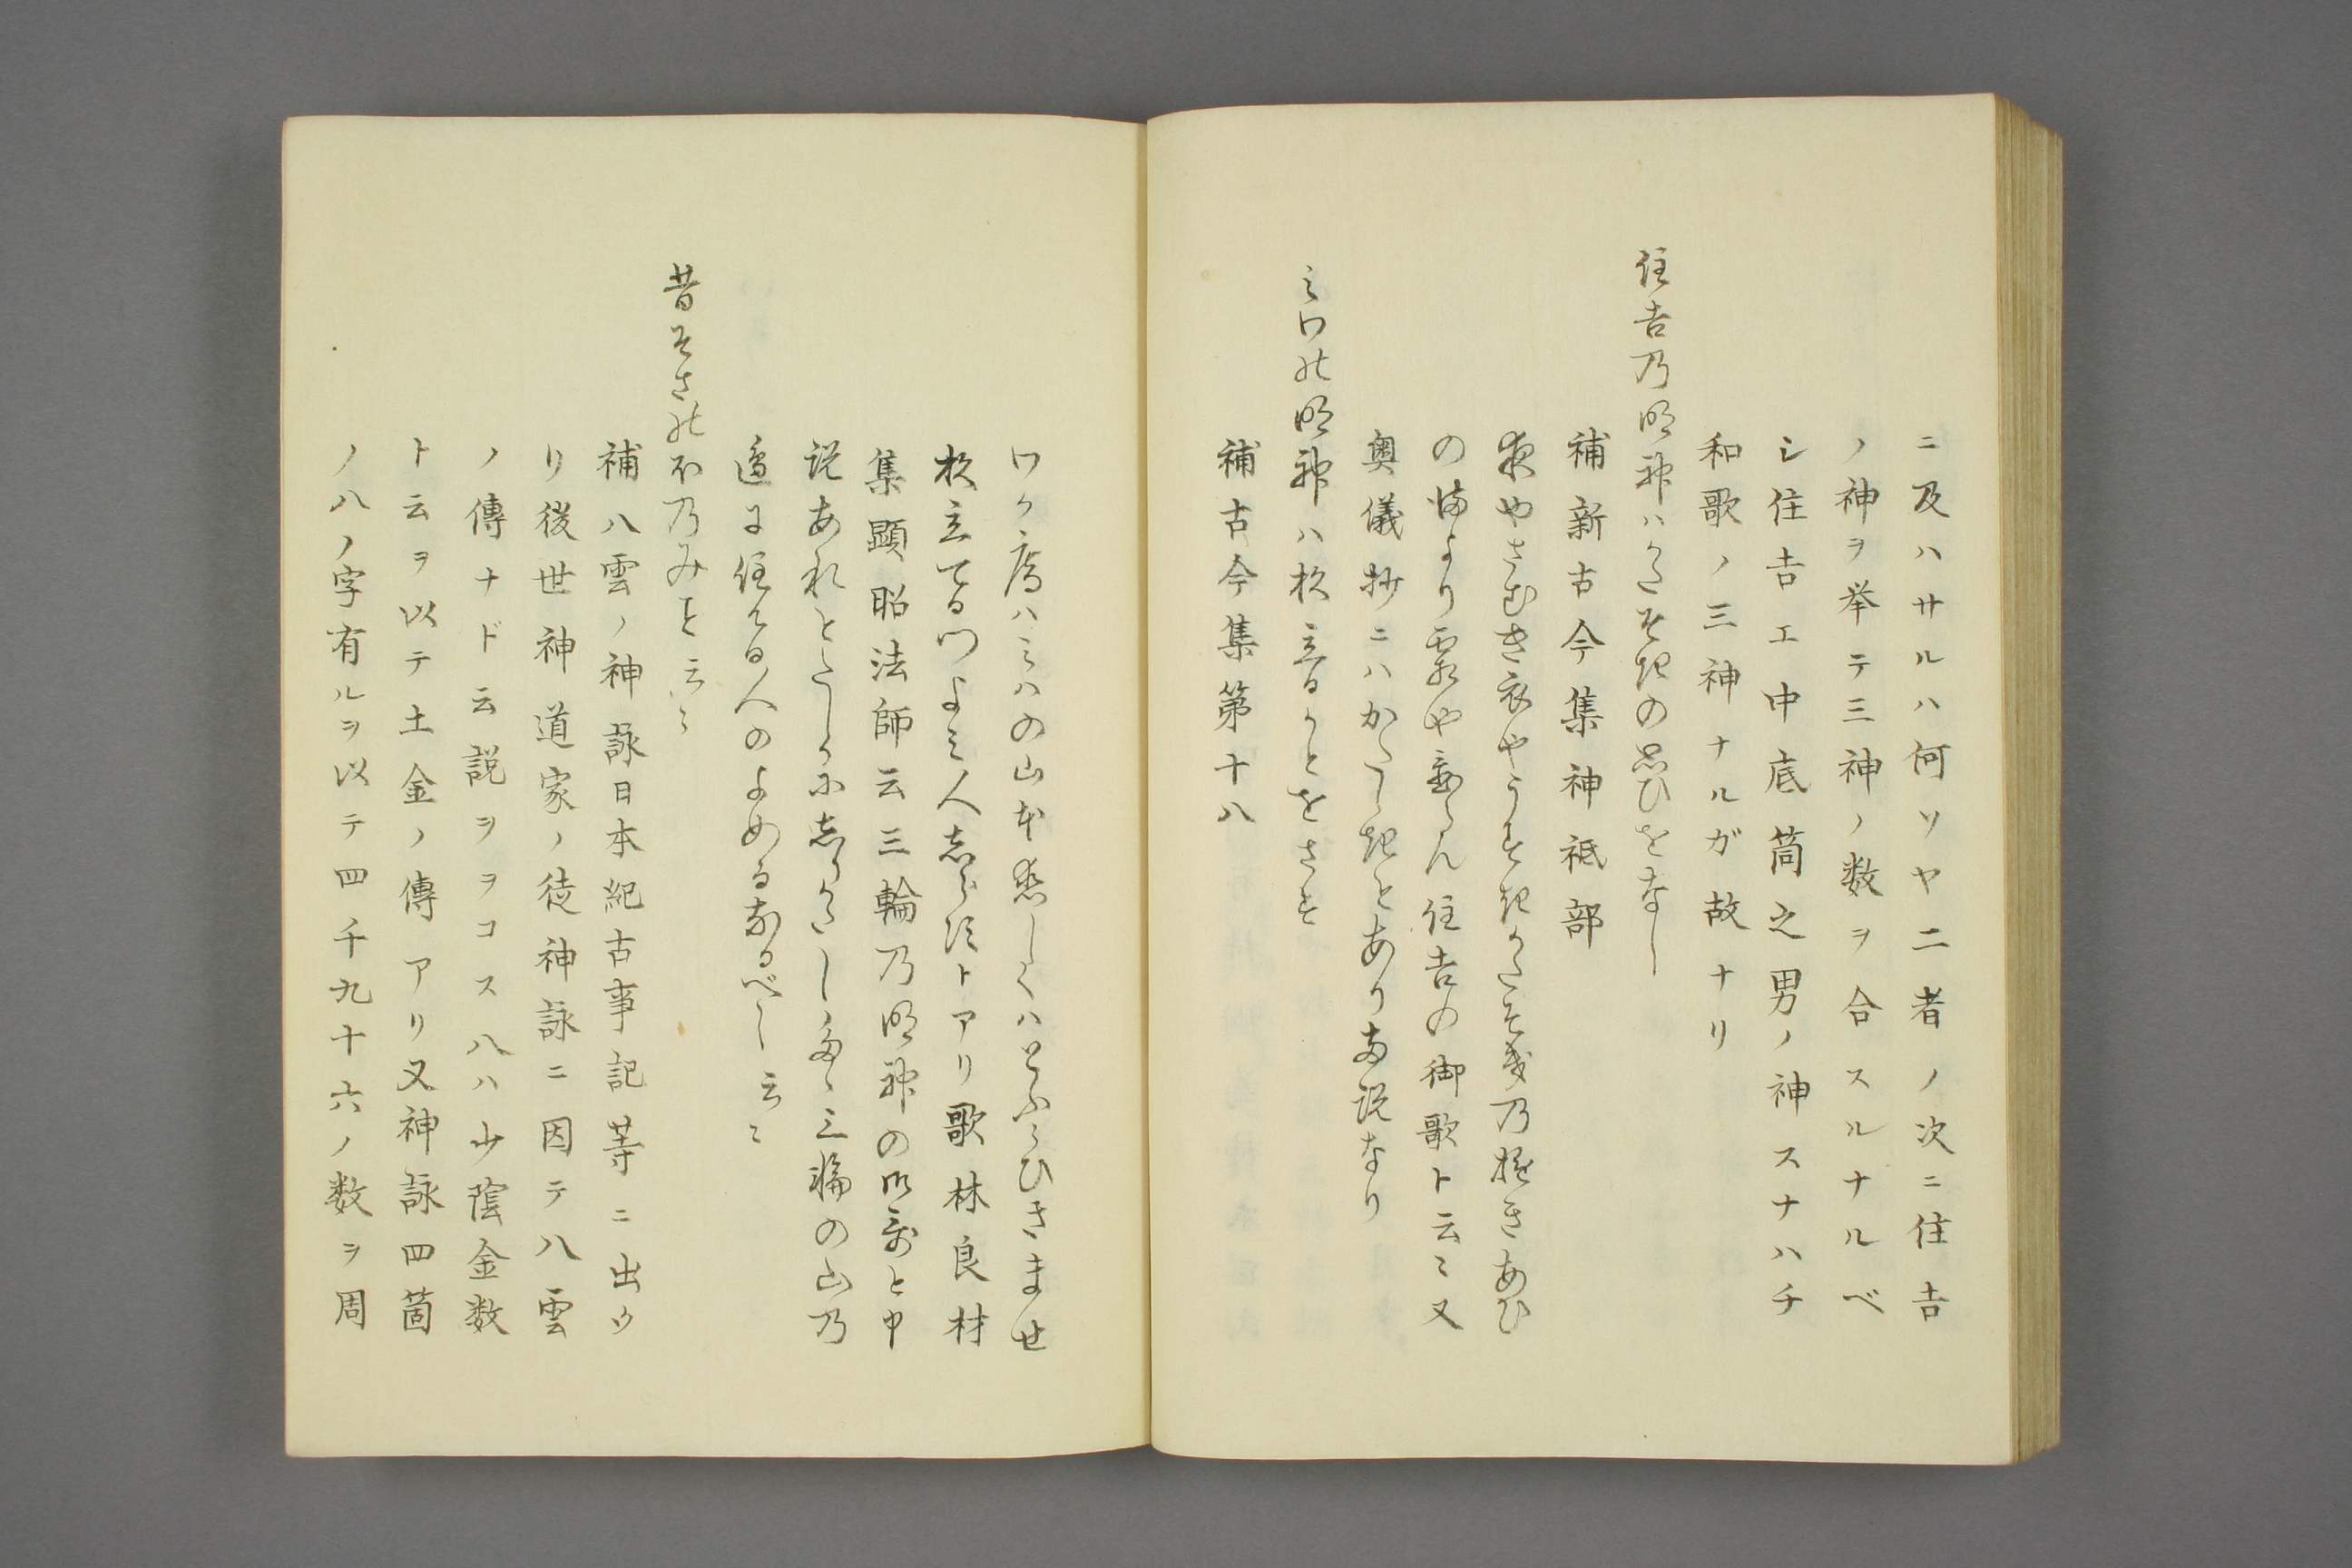 ニ及ハサルハ何ソヤ二者ノ次ニ住吉
ノ神ヲ挙テ三神ノ数ヲ合スルナルベ
シ住吉エ中底筒之男ノ神スナハチ
和歌ノ三神ナルガ故ナリ
住吉乃明神ハかたそきの思ひをなし
補新古今集神祇部
夜やさむき衣やうすきかたそきの
の間より霜やおくらん住吉の御歌ト云〻又
奥儀抄ニハかたそきとあり両説なり
みわの明神ハ杉立るかとをさす
補古今集第十八
わか庵ハみわの山本恋しくハとふらひきませ
杉立てる門よみ人志らすトアリ歌林良材
集顕昭法師云三輪乃明神の御哥と申
説あれとたしかに志りかたし三輪の山乃
邊に住ける人のよめるなるべし云〻
昔そさのおのみこと云〻
補八雲ノ神詠日本紀古事記等ニ出タ
リ後世神道家ノ徒神詠ニ因テ八雲
ノ傳ナド云説ヲヲコス八ハ少陰金数
ト云ヲ以テ土金ノ傳アリ又神詠四箇
ノ八ノ字有ルヲ以テ四千九十六ノ数ヲ周